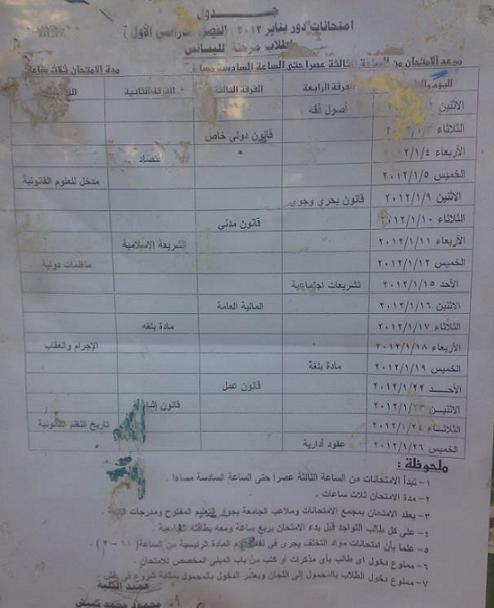 جـــدول
امتحانات دور يناير ٢٠١٢ (الفصل الدراسي الأول)
لطلاب مرحلة الليسانس
موعد الامتحان من الساعة الثالثة عصرا حتى الساعة السادسة مساءا مدة الامتحان ثلاث ساعات
اليوم الفرقة الرابعة الفرقة الثالثة الفرقة الثانية
الاثنين أصول فقه
الثلاثاء قانون دولي خاص
الأربعاء ٢٠١٢/١/٤ *
الخميس ٢٠١٢/١/٥ مدخل للعلوم القانونية
الاثنين ٢٠١٢/١/٩ قانون بحري وجوي
الثلاثاء ٢٠١٢/١/١٠ قانون مدني
الأربعاء ٢٠١٢/١/١١ الشريعة الإسلامية
الخميس ٢٠١٢/١/١٢ منظمات دولية
الأحد ٢٠١٢/١/١٥ تشريعات اجتماعية
الاثنين ٢٠١٢/١/١٦ المالية العامة
الثلاثاء ٢٠١٢/١/١٧ مادة بلغه
الأربعاء ٢٠١٢/١/١٨ الإجرام والعقاب
الخميس ٢٠١٢/١/١٩ مادة بلغة
الأحــد ٢٠١٢/١/٢٢ قانون عمل
الاثنيـن ٢٠١٢/١/٢٣ قانون
الثلاثاء ٢٠١٢/١/٢٤ تاريخ النظم القانونية
الخميس ٢٠١٢/١/٢٦ عقود أدارية *
ملحوظة :
١- تبدأ الامتحانات من الساعة الثالثة عصرا حتى الساعة السادسة مساءا .
٢- مدة الامتحان ثلاث ساعات .
٣- يعقد الامتحان بمجمع الامتحانات وملاعب الجامعة بجوار التعليم المفتوح ومدرجات
٤- على كل طالب التواجد قبل بدء الامتحان بربع ساعة ومعه بطاقته الجامعية .
٥- علما بأن امتحانات مواد التخلف يجرى في المادة الرئيسية من الساعة
٦- ممنوع دخول اى طالب بأي مذكرات أو كتب من باب المبنى المخصص للامتحان .
٧- ممنوع دخول الطلاب بالمحمول إلى اللجان ويعتبر الدخول بالمحمول بمثابة شروع في غش .
عميد الكلية
محمود محمد